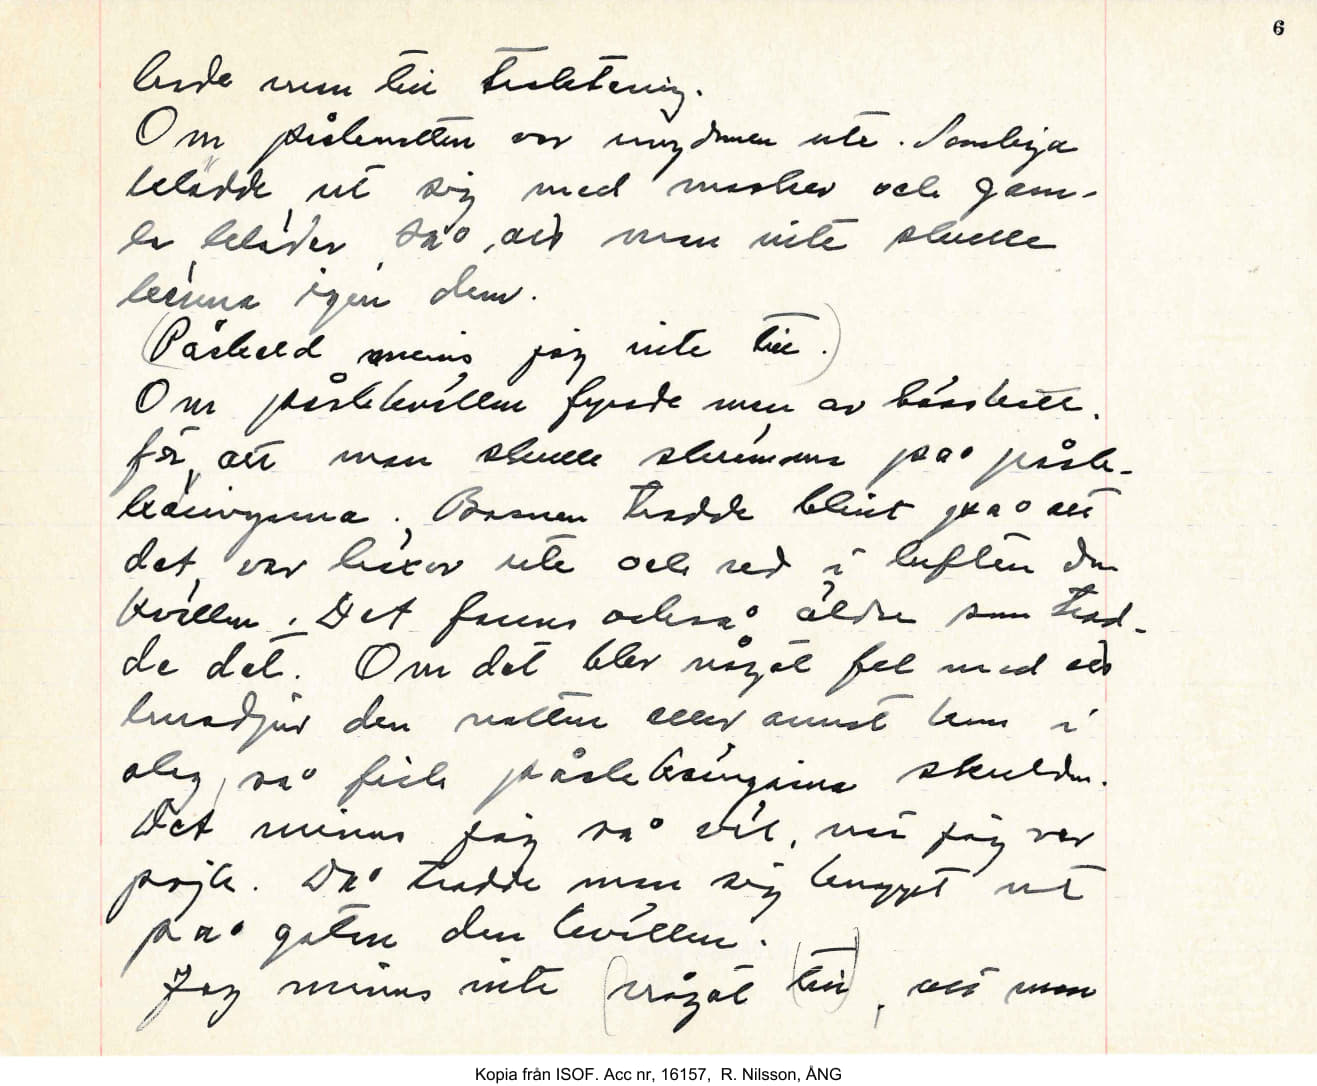 6
hade man till traktering.
Om påsknatten var ungdomen ute. Somliga
klädde ut sig med masker och gam-
la kläder så, att man inte skulle
känna igen dem.
(Påskeld minns jag inte till.)
Om påskkvällen fyrade man av bösskott,
för att man skulle skrämma på påsk-
käringarna. Barnen trodde blint på att
det var häxor ute och red i luften den
kvällen. Det fanns också äldre som trod-
de det. Om det blev något fel med ett
husdjur den natten eller annat kom i
olag, så fick påskkäringarna skulden.
Det minns jag så väl, när jag var
pojk. Då trodde man sig knappt ut
på gatan den kvällen.
Jag minns inte (något (till), att man
Kopia från ISOF. Acc nr, 16157, R. Nilsson, ÅNG